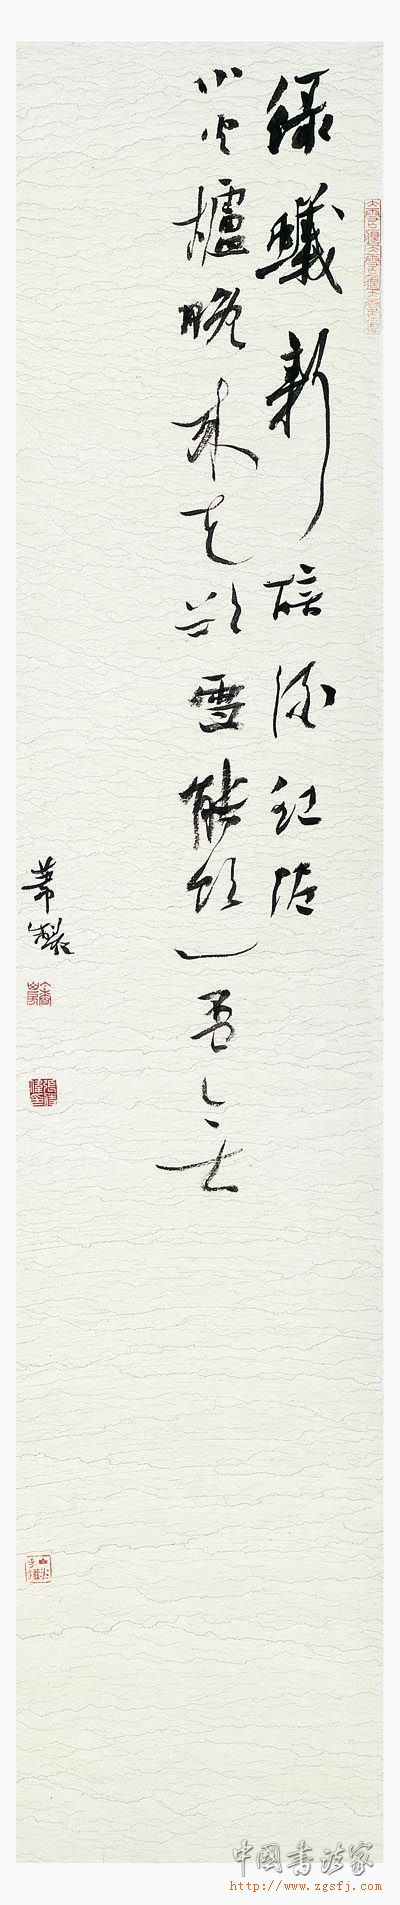 綠蟻新醅酒紅泥
小火爐晚來天欲雪能飲一盃無
製
中國書法家
http://www.zgsfj.com